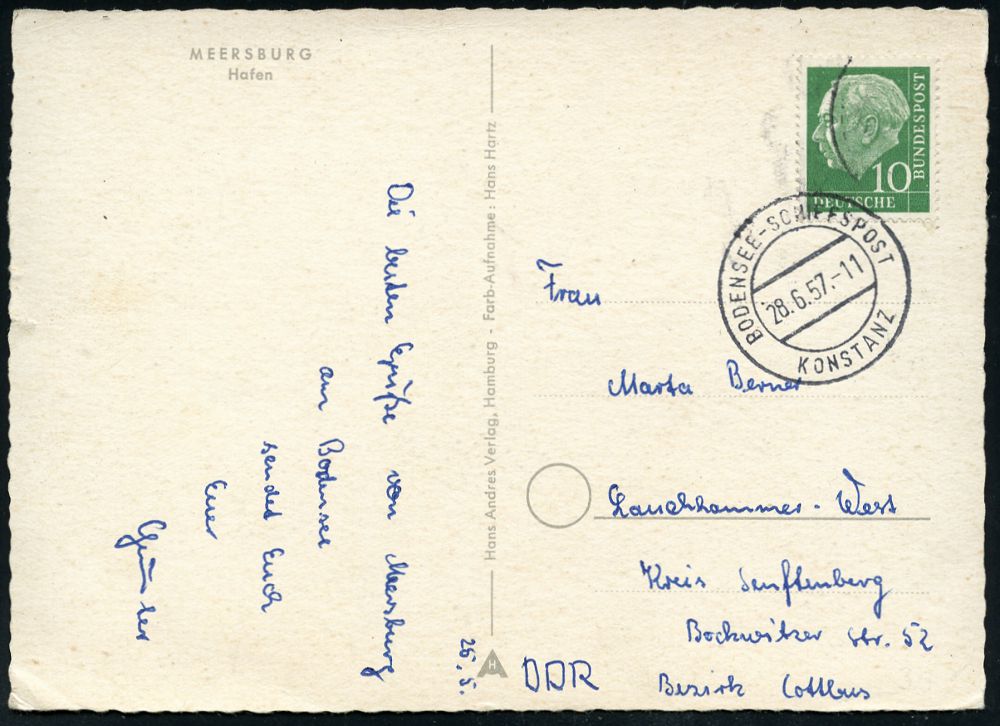 MEERSBURG
Hafen
Die besten Grüße von Meersburg
am Bodensee
sendet Euch
Euer
Günter
26.5.
Hans Andres Verlag, Hamburg - Farb-Aufnahme: Hans Hartz
H
BUNDESPOST
10
DEUTSCHE
BODENSEE-SCHIFFSPOST
28.6.57.-11
KONSTANZ
Frau
Marta Berner
Lauchhammer-West
Kreis Senftenberg
Bockwitzer Str. 52
DDR Bezirk Cottbus